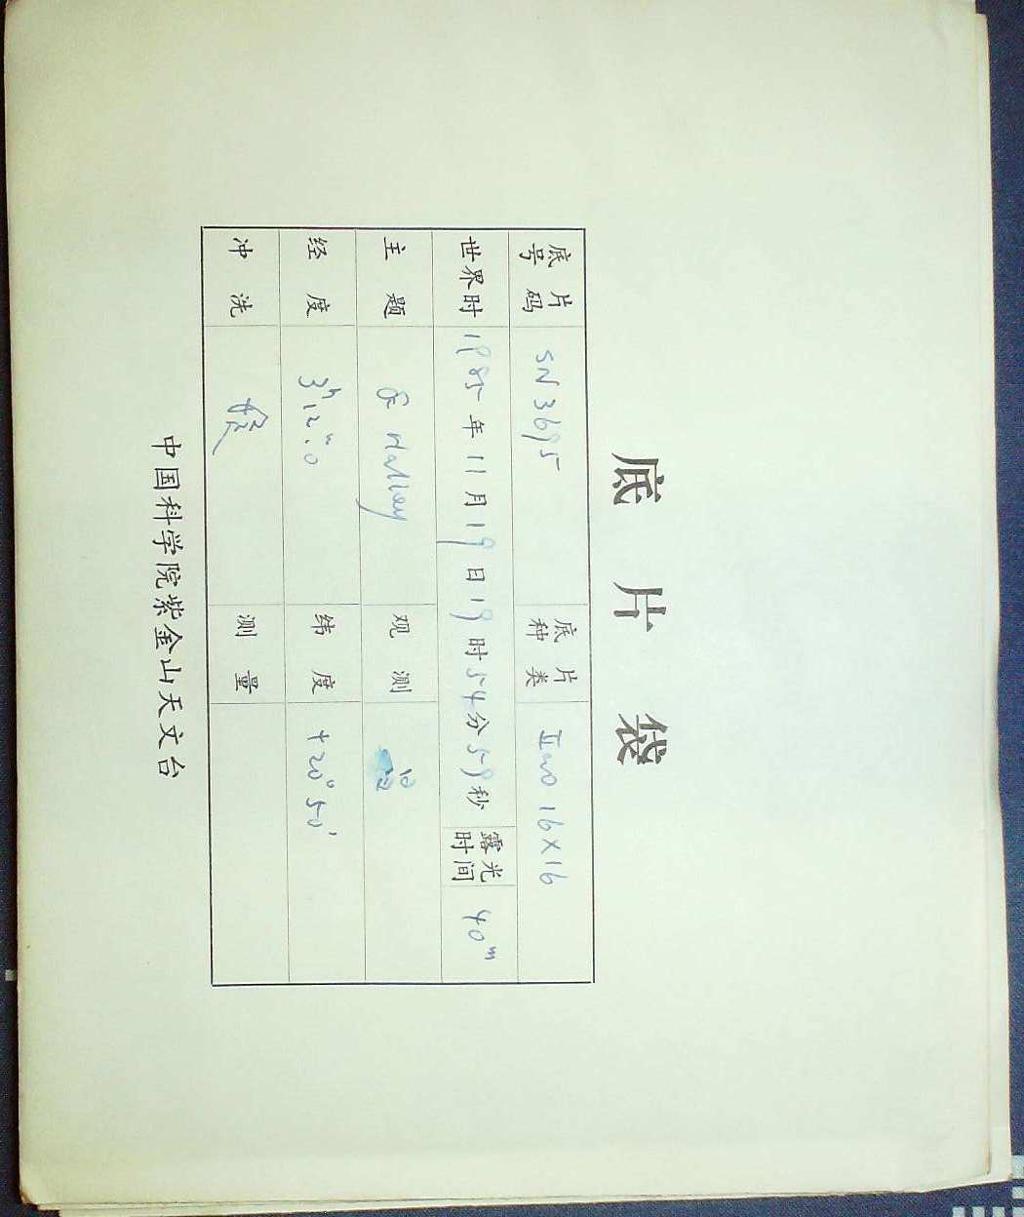 底片袋
底片号码 SN3695 底片种类 IIaO 16×16
世界时 1985年11月19日19时54分59秒 露光时间 40m
主题 Halley 观测
经度 3h12m.0 纬度 +20°50′
冲洗 测量
中国科学院紫金山天文台